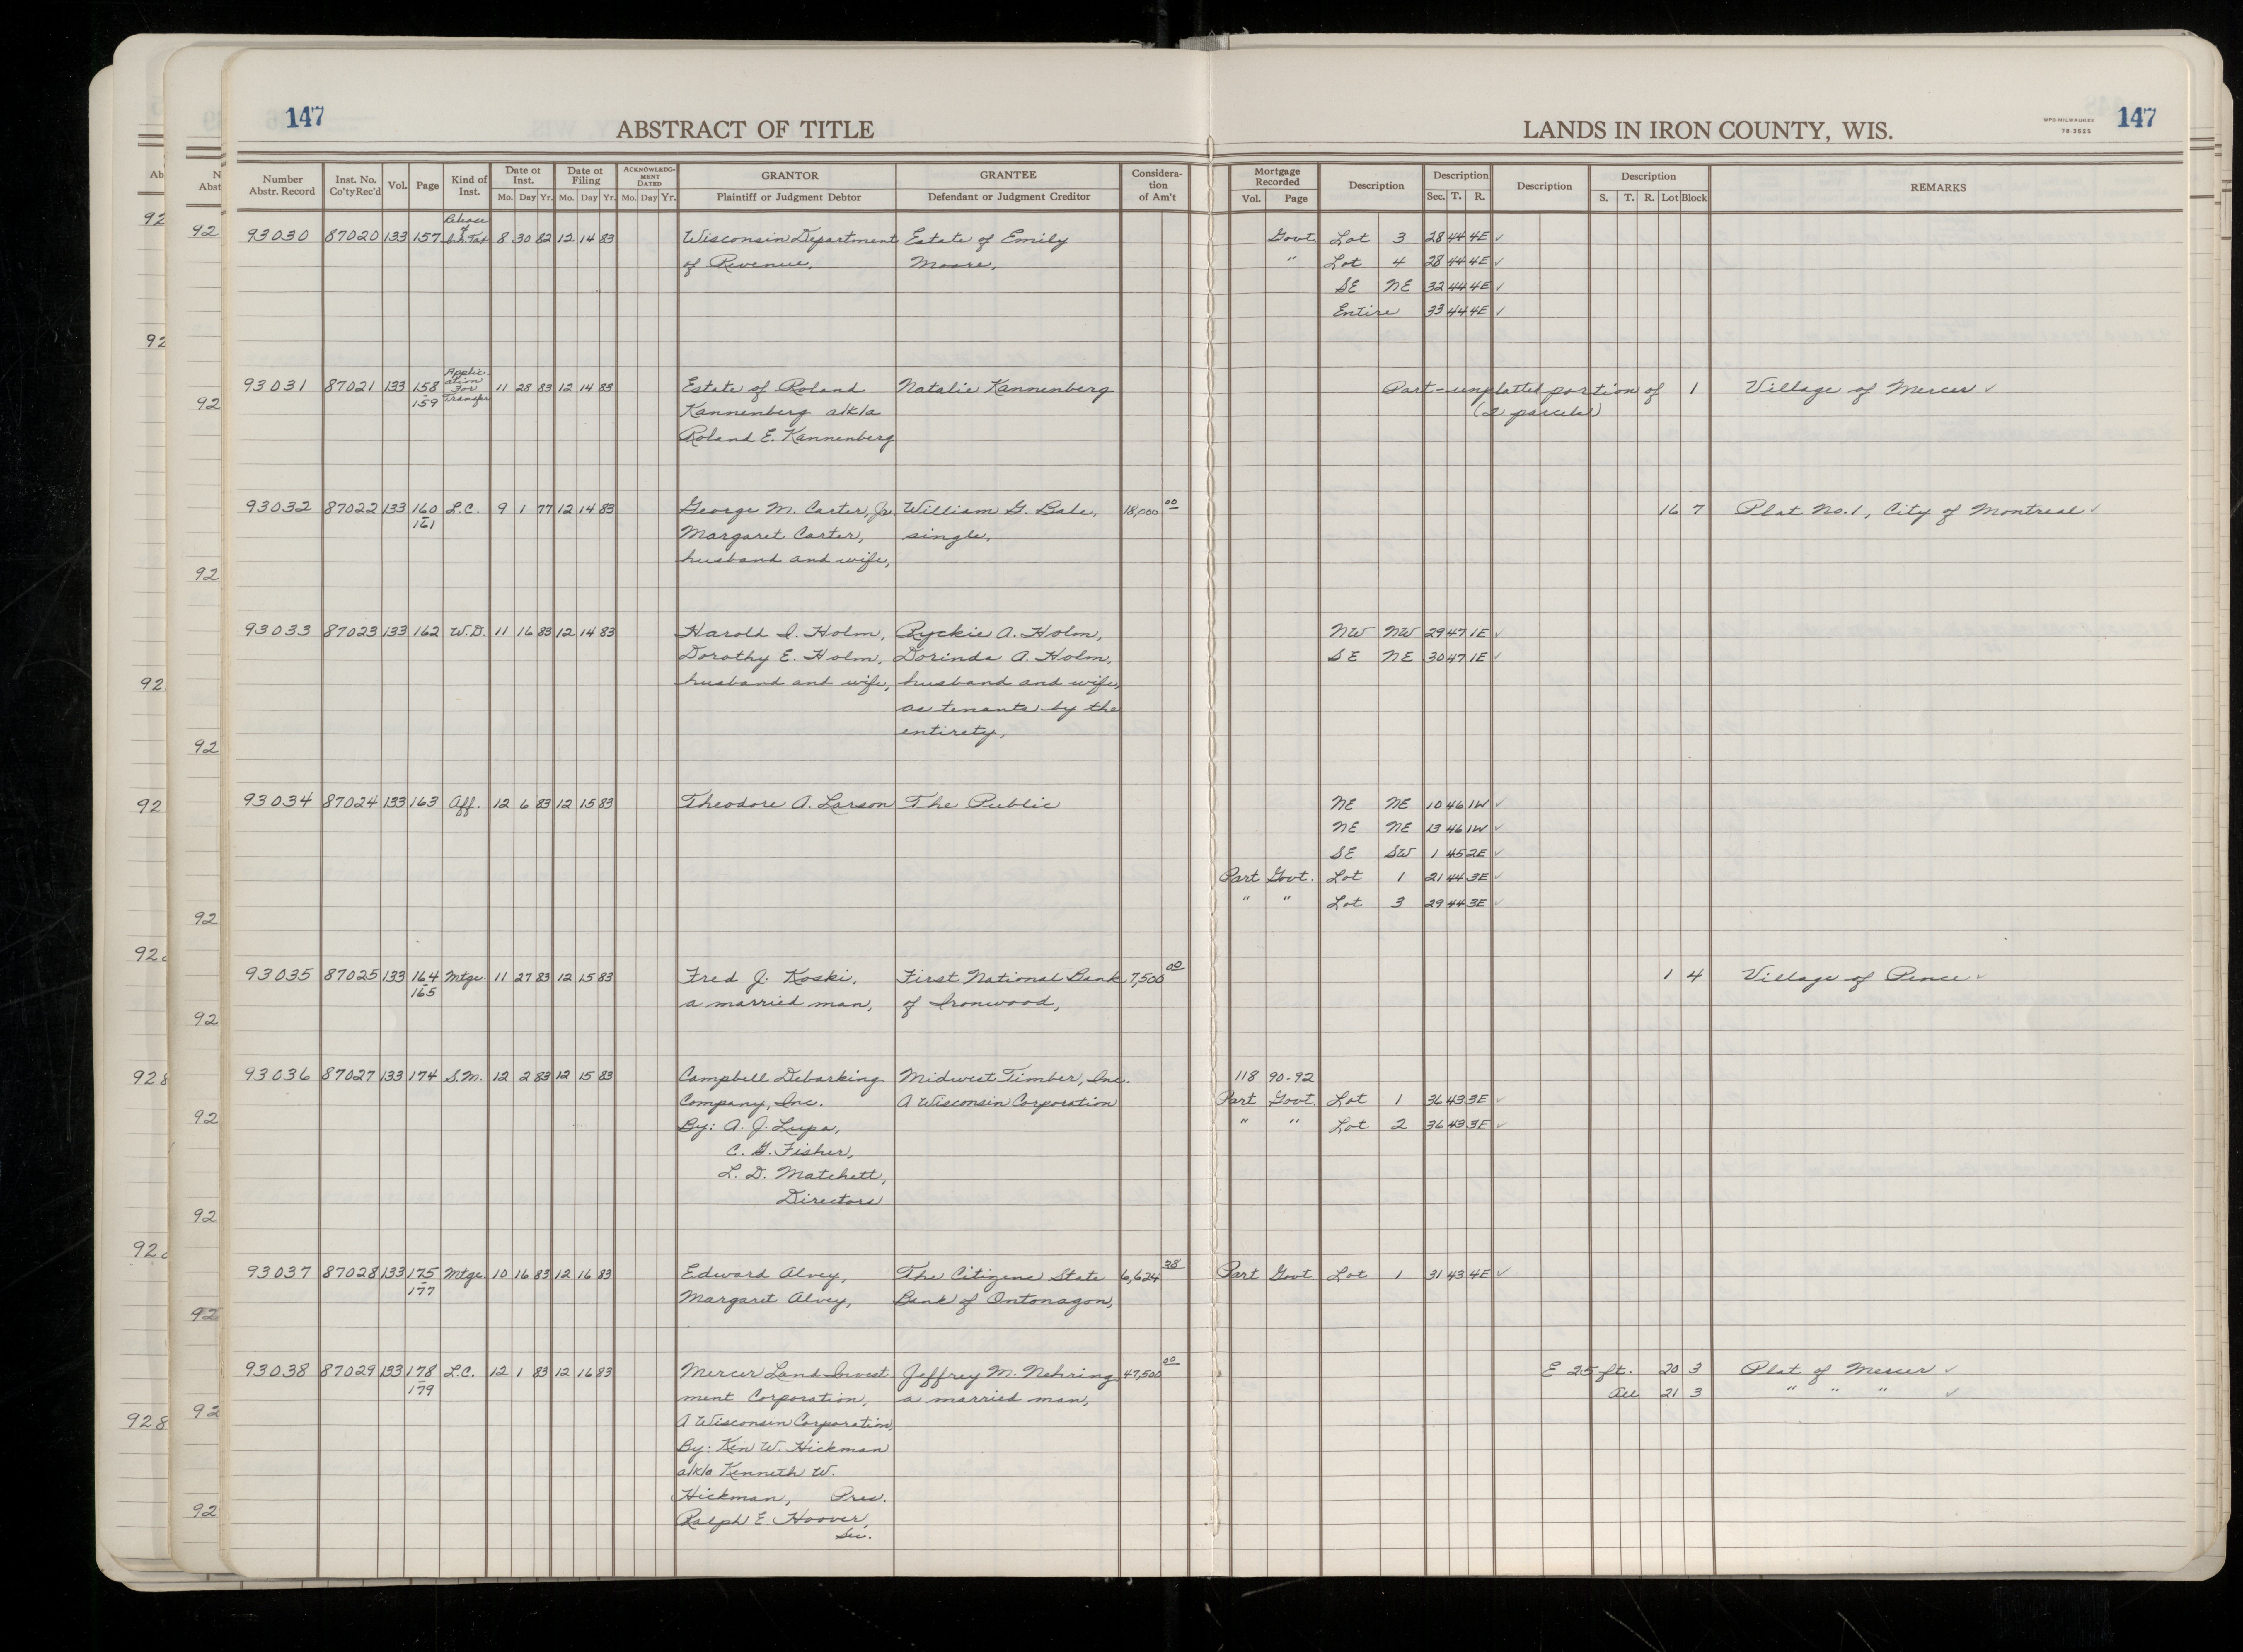 147
ABSTRACT OF TITLE
LANDS IN IRON COUNTY, WIS.
WPB-MILWAUKEE
78-3525
147
Number Abstr. Record Inst. No. Co'ty Rec'd Vol. Page Kind of Inst. Date of Inst. Mo. Day Yr. Date of Filing Mo. Day Yr. ACKNOWLEDG-MENT DATED Mo. Day Yr. GRANTOR Plaintiff or Judgment Debtor GRANTEE Defendant or Judgment Creditor Considera-tion of Am't Mortgage Recorded Vol. Page Description Description Sec. T. R. Description Description S. T. R. Lot Block REMARKS
Release
of
93030 87020 133 157 Inh. Tax 8 30 82 12 14 83 Wisconsin Department Estate of Emily Govt Lot 3 28 44 4E ✓
of Revenue, Moore, " Lot 4 28 44 4E ✓
SE NE 32 44 4E ✓
Entire 33 44 4E ✓
Applic-
ation
93031 87021 133 158 For 11 28 83 12 14 83 Estate of Roland Natalie Kannenberg Part-unplatted portion of 1 Village of Mercer ✓
-159 Transfer Kannenberg a/k/a (2 parcels)
Roland E. Kannenberg
93032 87022 133 160 L.C. 9 1 77 12 14 83 George M. Carter, Jr. William G. Bale, 18,000 00 16 7 Plat No. 1, City of Montreal ✓
-161 Margaret Carter, single,
husband and wife,
93033 87023 133 162 W.D. 11 16 83 12 14 83 Harold I. Holm, Ryckie A. Holm, NW NW 29 47 1E ✓
Dorothy E. Holm, Dorinda A. Holm, SE NE 30 47 1E ✓
husband and wife, husband and wife,
as tenants by the
entirety,
93034 87024 133 163 Aff. 12 6 83 12 15 83 Theodore A. Larson The Public NE NE 10 46 1W ✓
NE NE 13 46 1W ✓
SE SW 1 45 2E ✓
Part Govt. Lot 1 21 44 3E ✓
" " Lot 3 29 44 3E ✓
93035 87025 133 164 Mtge. 11 27 83 12 15 83 Fred J. Koski, First National Bank 7,500 00 1 4 Village of Pence ✓
-165 a married man, of Ironwood,
93036 87027 133 174 S.M. 12 2 83 12 15 83 Campbell Debarking Midwest Timber, Inc. 118 90-92
Company, Inc. A Wisconsin Corporation Part Govt. Lot 1 36 43 3E ✓
By: A. J. Lupa, " " Lot 2 36 43 3E ✓
C. G. Fisher,
L. D. Matchett,
Directors
93037 87028 133 175 Mtge. 10 16 83 12 16 83 Edward Alvey, The Citizens State 6,624 38 Part Govt Lot 1 31 43 4E ✓
-177 Margaret Alvey, Bank of Ontonagon,
93038 87029 133 178 L.C. 12 1 83 12 16 83 Mercer Land Invest- Jeffrey M. Nehring 47,500 00 E 25 ft. 20 3 Plat of Mercer ✓
-179 ment Corporation, a married man, All 21 3 " " " ✓
A Wisconsin Corporation,
By: Ken W. Hickman
a/k/a Kenneth W.
Hickman, Pres.
Ralph E. Hoover,
Sec.